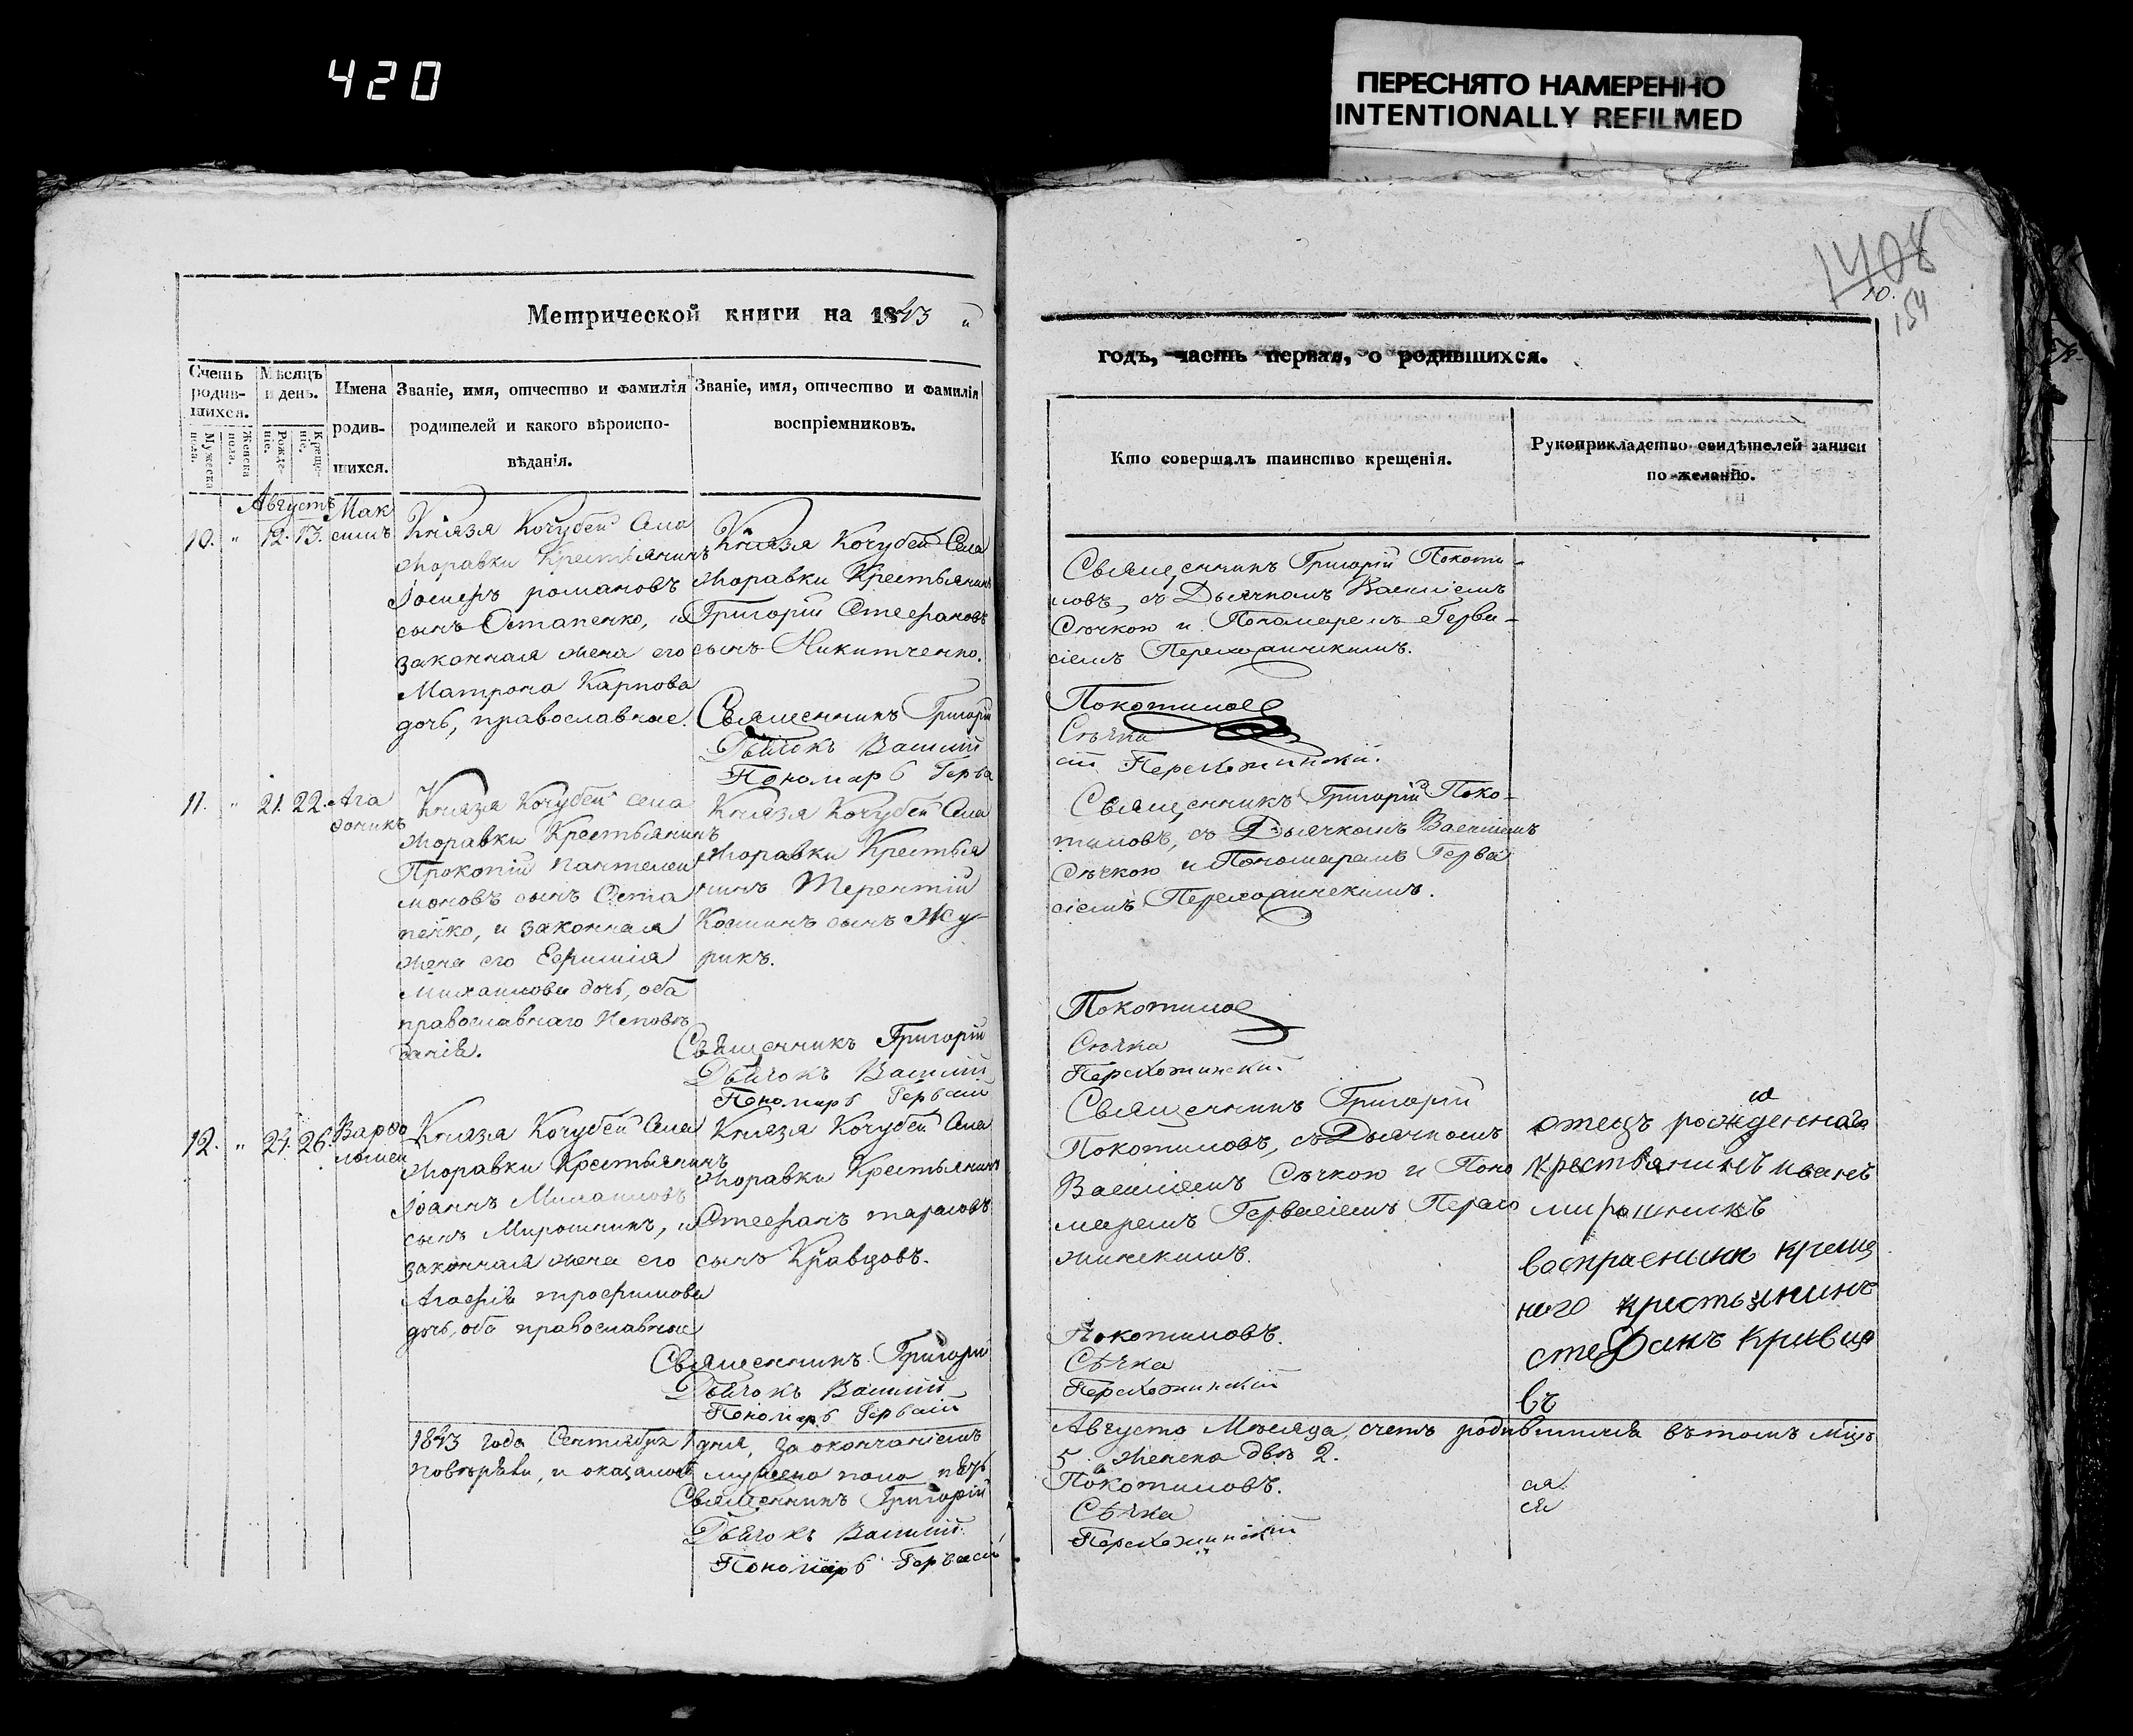 420
ПЕРЕСНЯТО НАМЕРЕННО
INTENTIONALLY REFILMED
1408
10.
154
Метрической книги на 1843
годъ, часть первая, о родившихся.
Счетъ родив-шихся.
Мужеска пола.
Женска пола.
Мѣсяцъ и день.
Рожде-ніе.
Креще-ніе.
Имена
родив-
шихся.
Званіе, имя, отчество и фамилія
родителей и какого вѣроиспо-
вѣданія.
Званіе, имя, отчество и фамилія
воспріемниковъ.
Кто совершалъ таинство крещенія.
Рукоприкладство свидѣтелей записи
по желанію.
Августъ
10. " 12. 13.
Мак
симъ
Князя Кочубей Села
Моравки Крестьянинъ
Іосифъ романовъ
сынъ Остапенко, и
законная жена его
Матрона Карпова
дочь, православные.
Князя Кочубей Села
Моравки Крестьянинъ
Григорій Стефановъ
сынъ Никитченко.
Священникъ Григорій
Дьячокъ Василій
Пономарь Герва
Священникъ Григорій Покоти-
ловъ, съ Дьячкомъ Василіемъ
Сѣчкою и Пономаремъ Герва-
сіемъ Пережожинскимъ.
Покотилов
Сѣчка
сій Пережожинскій.
11. " 21. 22.
Ага
доникъ
Князя Кочубей села
Моравки Крестьянинъ
Прокопій Пантелей
моновъ сынъ Оста
пенко, и законная
жена его Евфимія
Михаилова дочь, оба
православнаго Исповѣ
данія.
Князя Кочубей Села
Моравки Крестья
нинъ Терентій
Косминъ сынъ Жу-
рикъ.
Священникъ Григорій
Дьячокъ Василій
Пономарь Гервасій
Священникъ Григорій Поко-
тиловъ, съ Дьячкомъ Василіемъ
Сѣчкою и Пономаремъ Герва
сіемъ Пережожинскимъ.
Покотилов
Сѣчка
Пережожинскій.
12. " 24. 26.
Варфо
ломей
Князя Кочубей Села
Моравки Крестьянинъ
Іоаннъ Михаиловъ
сынъ Мирошникъ, и
законная жена его
Агафія трофимова
дочь, оба православные
Князя Кочубей Села
Моравки Крестьянинъ
Стефанъ тарасовъ
сынъ Кравцовъ.
Священникъ Григорій
Дьячокъ Василій
Пономарь Гервасій
Священникъ Григорій
Покотиловъ, съ Дьячкомъ
Василіемъ Сѣчкою и Поно
маремъ Гервасіемъ Перехо
жинскимъ.
Покотиловъ.
Сѣчка
Пережожинскій
отецъ рожденнаго
крестьянинъ иванъ
мирошникъ
воспраемникъ креще
наго крестьянинъ
стефанъ кравцо
въ
1843 года Сентября 1 дня, за окончаніемъ Августа Мѣсяца, счетъ родившимся въ томъ мцѣ
повѣряли, и оказалось мужеска пола пять 5. Женска двѣ 2.
Священникъ Григорій Покотиловъ.
Дьячокъ Василій Сѣчка
Пономарь Гервасій Пережожинскій